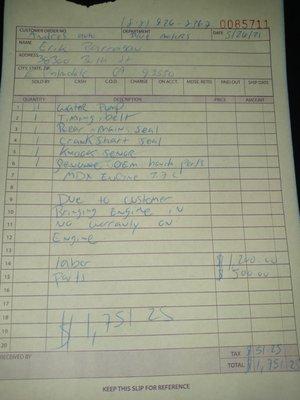 0085711
CUSTOMER ORDER NO.
DEPARTMENT
DATE
auto
motors
5/26/21
NAME
Erik
ADDRESS
CITY, STATE, ZIP
Palmdale CA 93550
SOLD BY CASH C.O.D. CHARGE ON ACCT. MDSE. RETD. PAID OUT SHIP DATE
QUANTITY DESCRIPTION PRICE AMOUNT
1 1 Water Pump
2 1 Timing belt
3 1 Rear-main seal
4 1 Crank shaft seal
5 1 Knocks
6 Genuine OEM Parts
7 MDX Engine 3.7 L
8
9 Due to customer
10 Bringing Engine in
11 NO warranty on
12 Engine
13
14 labor $1,200.00
15 Parts $500.00
16
17
18 $1,751.25
19
20
RECEIVED BY
TAX $51.25
TOTAL $1,751.25
KEEP THIS SLIP FOR REFERENCE